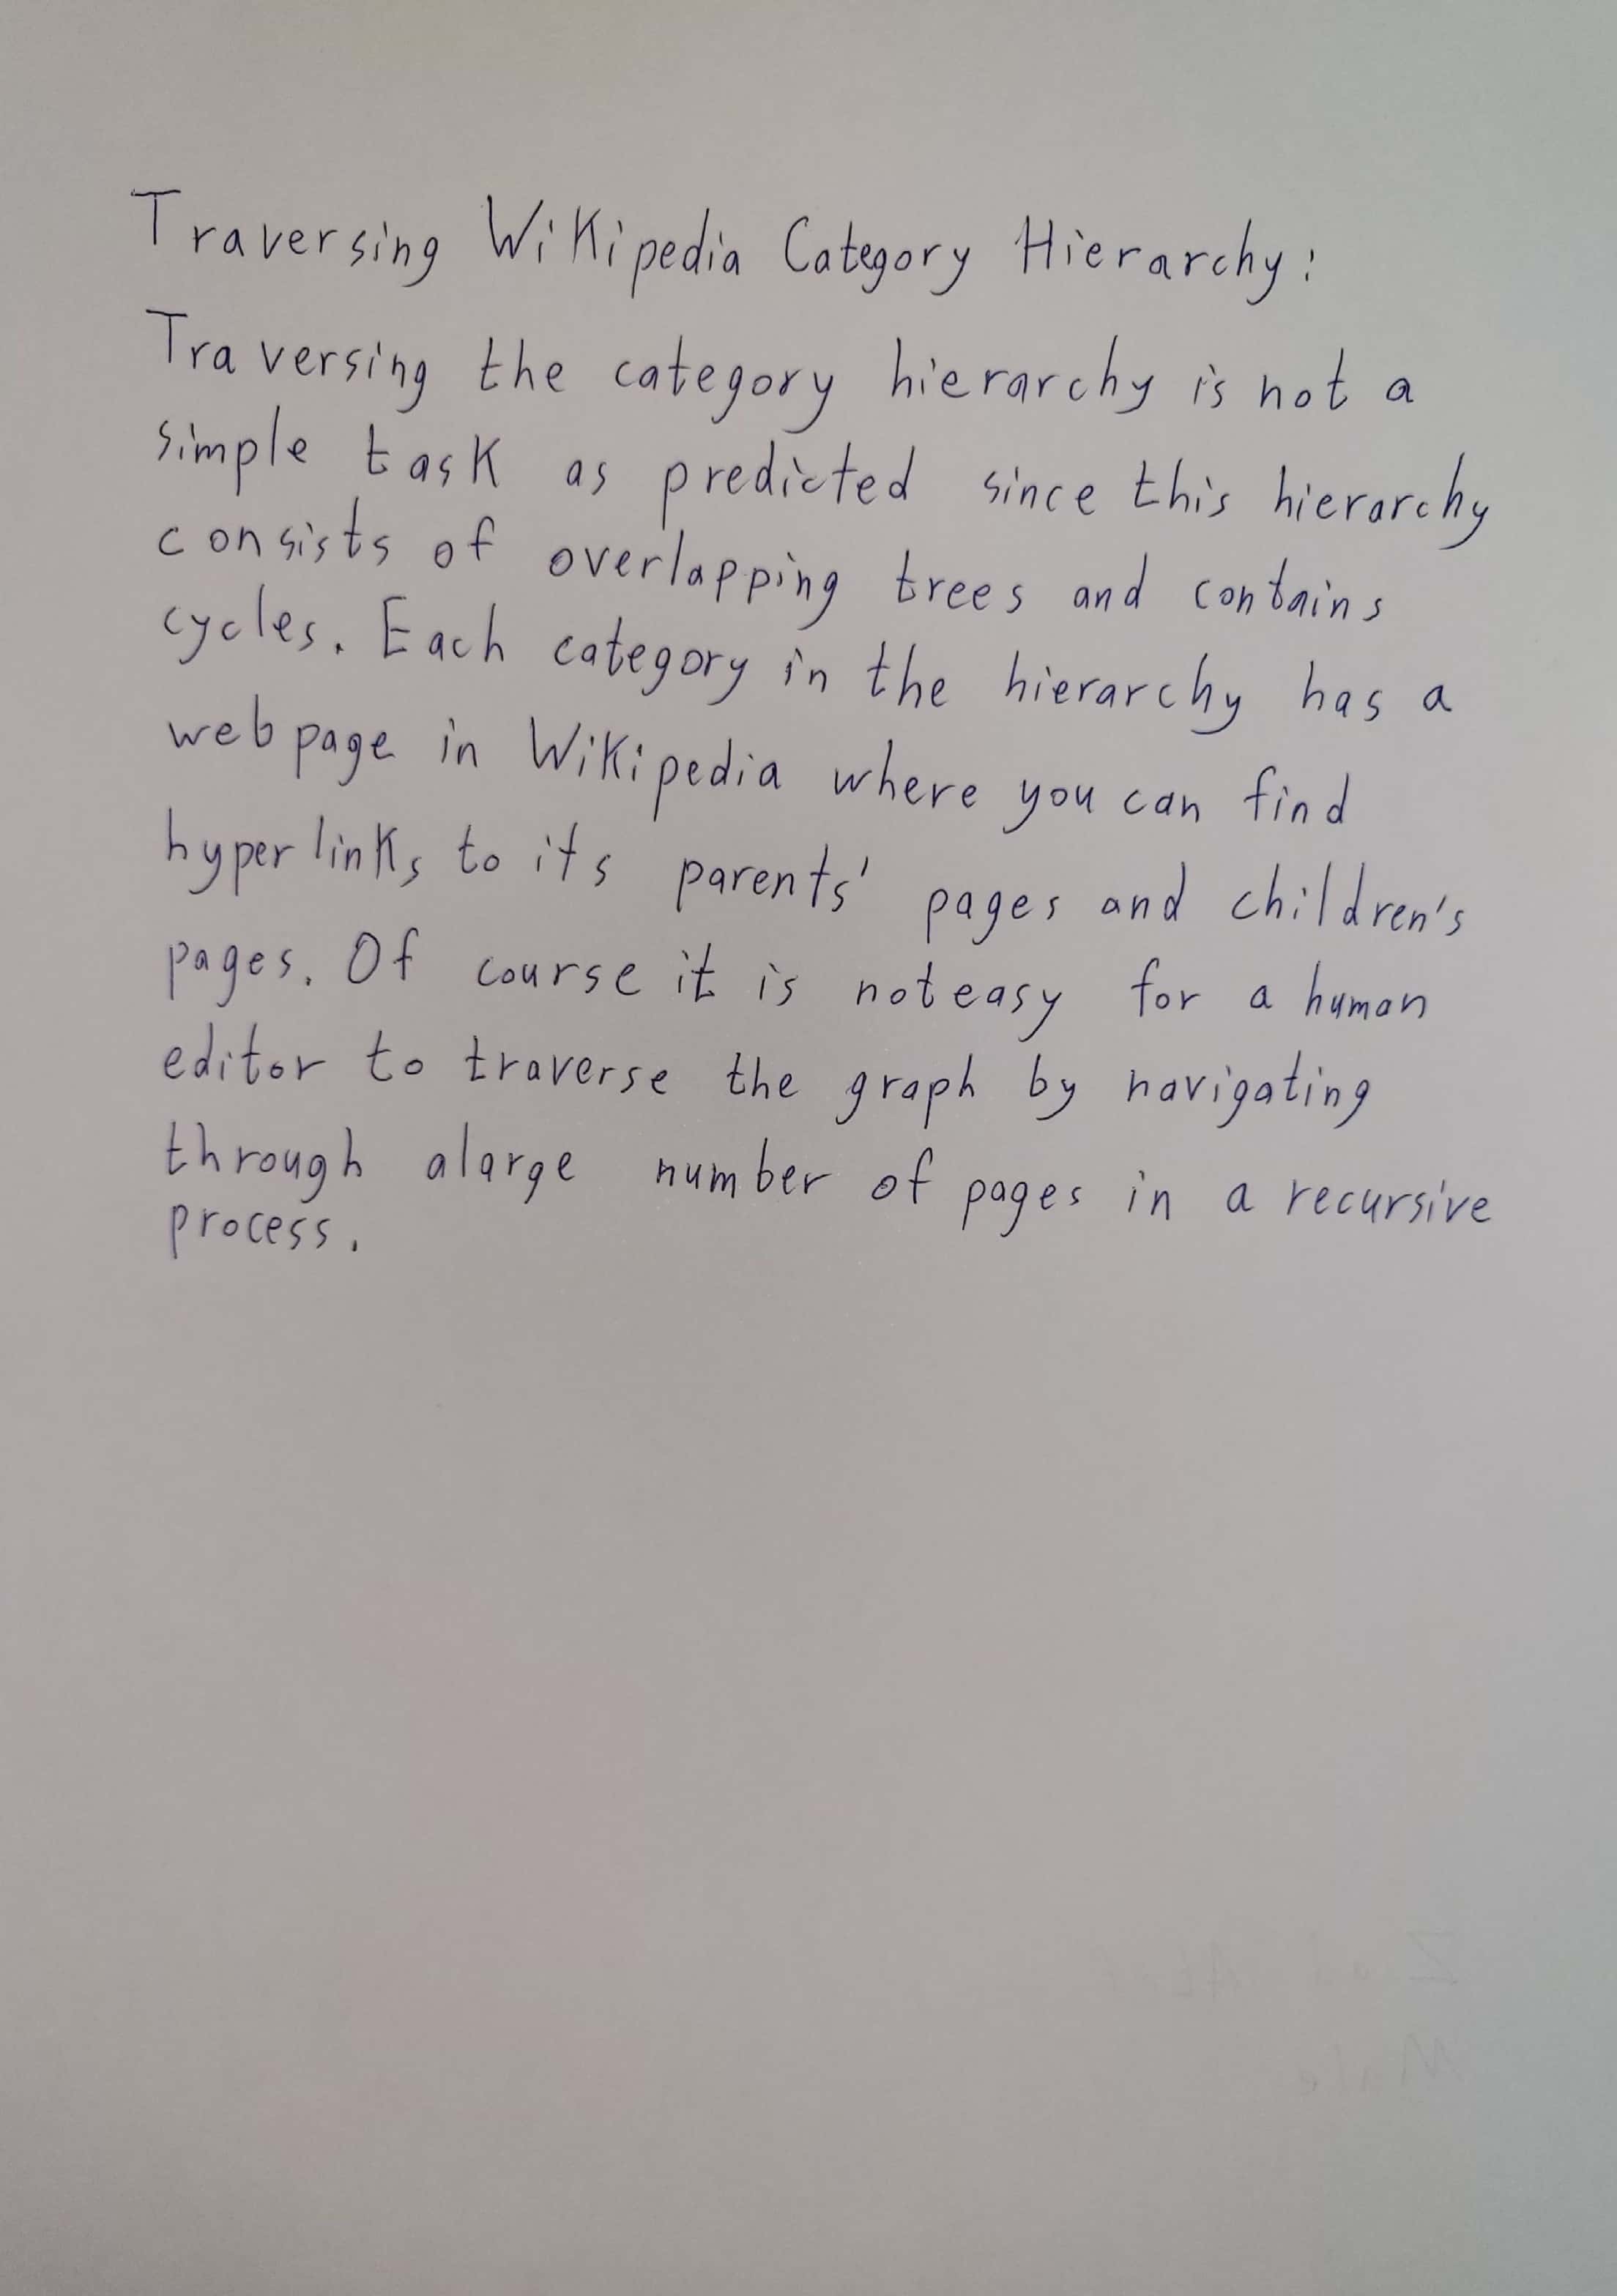 Traversing Wikipedia Category Hierarchy:
Traversing the category hierarchy is not a
simple task as predicted since this hierarchy
consists of overlapping trees and contains
cycles. Each category in the hierarchy has a
webpage in Wikipedia where you can find
hyperlinks to its parents' pages and children's
pages. Of course it is not easy for a human
editor to traverse the graph by navigating
through a large number of pages in a recursive
process.